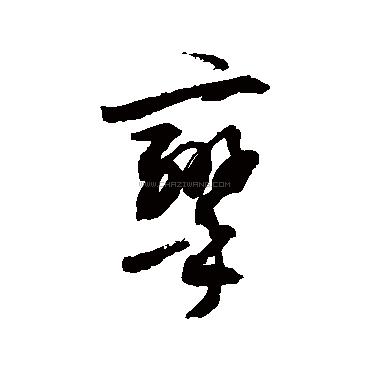 孿
WWW.SHAZIWANG.COM